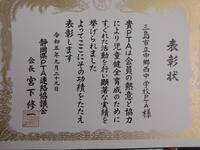 表彰状
三島市立中郷西中学校PTA様
貴PTAは会員の熱意と協力
により児童健全育成のために
すぐれた活動を行い顕著な実績を
挙げられました
よってここにその功績をたたえ
表彰します
令和五年九月二十九日
静岡県PTA連絡協議会
会長 宮下修一